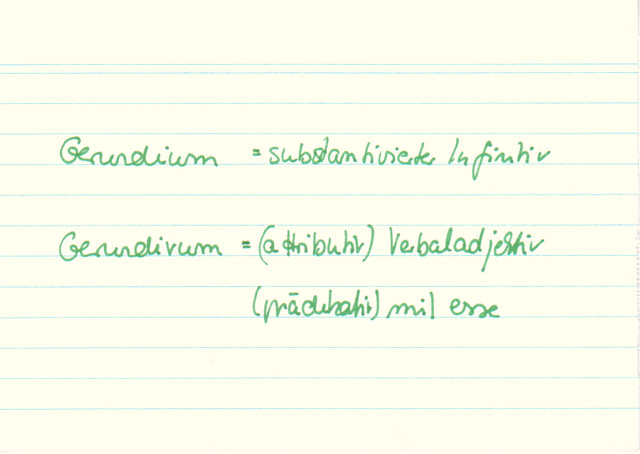 Gerundium = substantivierter Infinitiv
Gerundivum = (attributiv) Verbaladjektiv
(prädikativ) mit esse